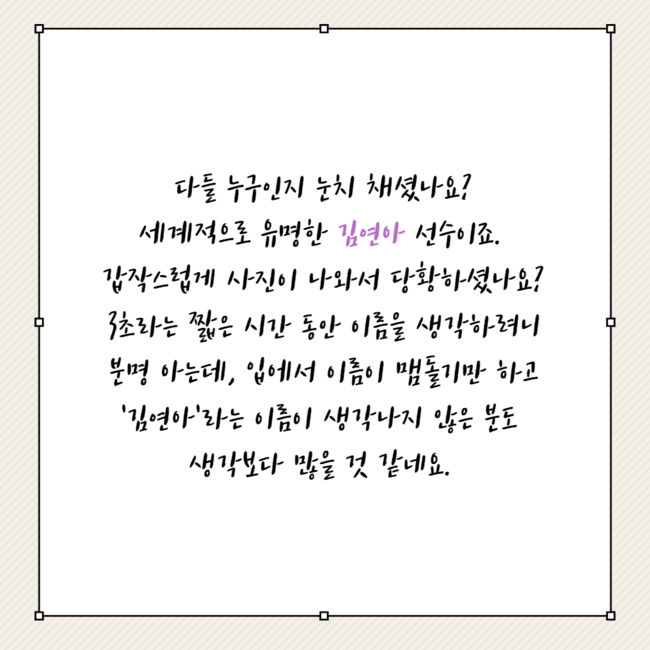 다들 누구인지 눈치 채셨나요?
세계적으로 유명한 김연아 선수이죠.
갑작스럽게 사진이 나와서 당황하셨나요?
3초라는 짧은 시간 동안 이름을 생각하려니
분명 아는데, 입에서 이름이 맴돌기만 하고
'김연아'라는 이름이 생각나지 않은 분도
생각보다 많을 것 같네요.